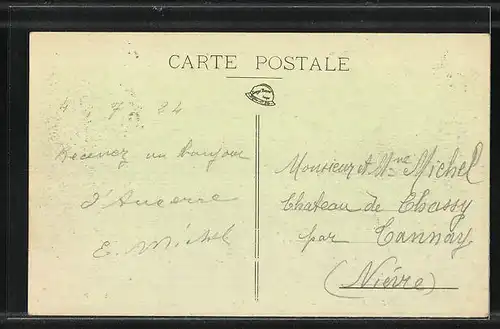 CARTE POSTALE
7 24
Recevez un bonjour
d'Auxerre
E. Michel
Monsieur et Mme Michel
Chateau de Chassy
par Tannay
(Nièvre)